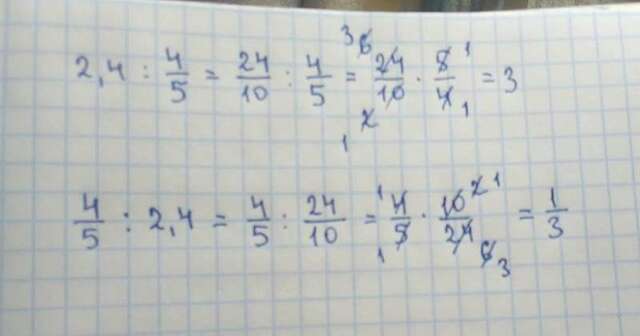 2,4 : 4/5 = 24/10 : 4/5 = 24/10 · 5/4 = 3
4/5 : 2,4 = 4/5 : 24/10 = 4/5 · 10/24 = 1/3